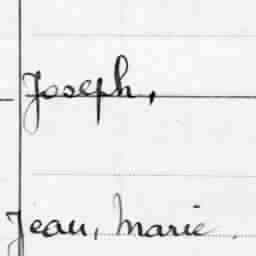 Joseph,
Jean, Marie.